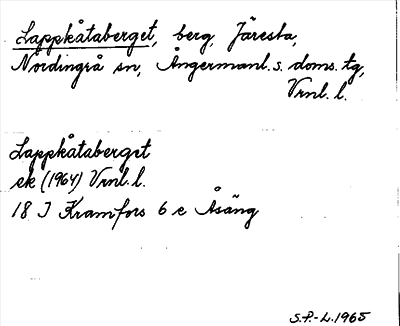 Lappkåtaberget, berg, Järesta,
Nordingrå sn, Ångermanl. s. doms. tg,
Vrnl. l.
Lappkåtaberget
ek (1964) Vrnl. l.
18 J Kramfors 6 e Åsäng
S.P.-L. 1965